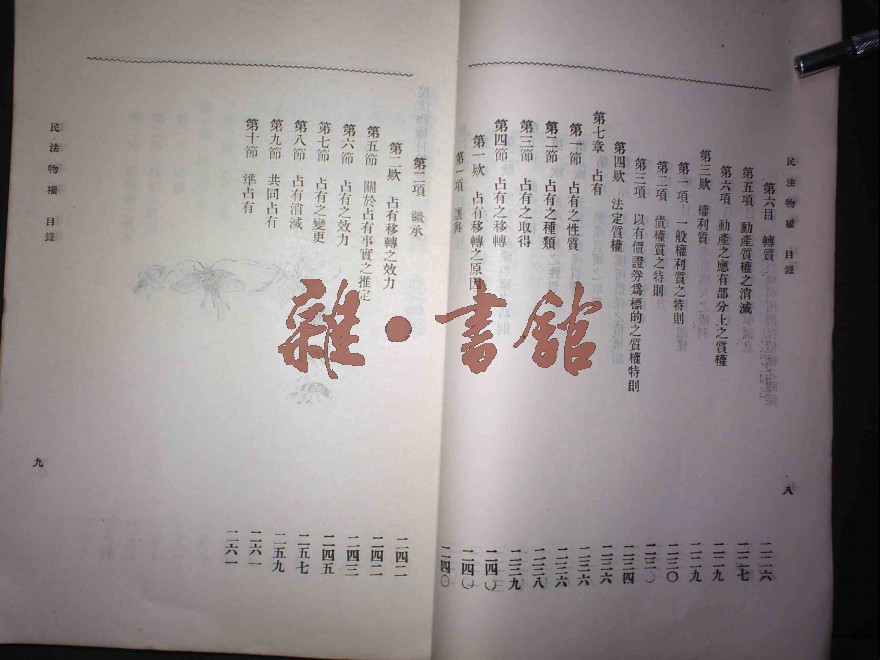 民法物權 目錄
八
第六目 轉質 二二六
第五項 動產質權之消滅 二二七
第六項 動產之應有部分上之質權 二二九
第三欵 權利質 二二九
第一項 一般權利質之特則 二三〇
第二項 債權質之特則 二三〇
第三項 以有價證券爲標的之質權特則 二三四
第四欵 法定質權 二三六
第七章 占有 二三六
第一節 占有之性質 二三六
第二節 占有之種類 二三八
第三節 占有之取得 二三九
第四節 占有之移轉 二四〇
第一欵 占有移轉之原因 二四〇
第一項 讓與 二四〇
第二項 繼承 二四二
第二欵 占有移轉之效力 二四二
第五節 關於占有事實之推定 二四三
第六節 占有之效力 二四五
第七節 占有之變更 二五七
第八節 占有消滅 二五九
第九節 共同占有 二六一
第十節 準占有 二六一
民法物權 目錄
九
雜·書館